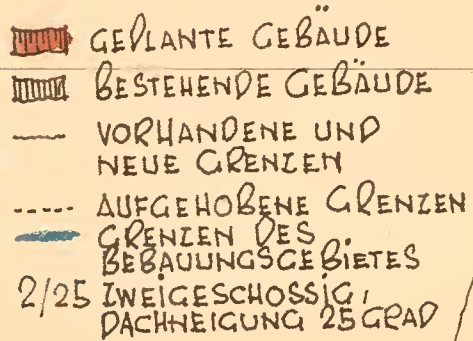 GEPLANTE GEBÄUDE
BESTEHENDE GEBÄUDE
VORHANDENE UND
NEUE GRENZEN
AUFGEHOBENE GRENZEN
GRENZEN DES
BEBAUUNGSGEBIETES
2/25 ZWEIGESCHOSSIG,
DACHNEIGUNG 25 GRAD